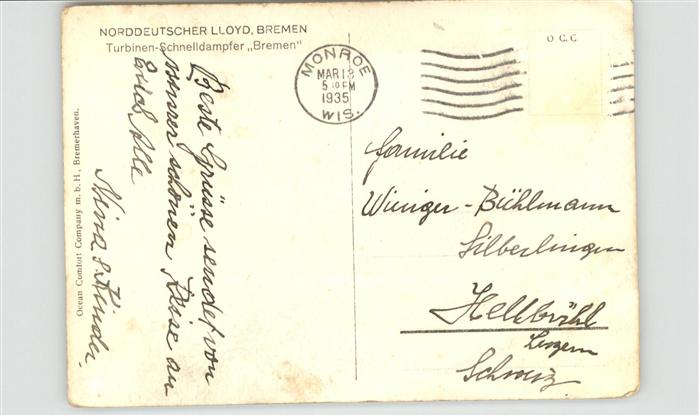 NORDDEUTSCHER LLOYD, BREMEN
Turbinen-Schnelldampfer „Bremen"
Ocean Comfort Company m. b. H., Bremerhaven.
Beste Grüsse sendet von
unsrer schönen Reise an
Euch Alle
Nina & Kinder.
MONROE
MAR 18
5 PM
1935
WIS.
O C C
Familie
Winiger-Bühlmann
Silberlingen
Hellbühl
Luzern
Schweiz